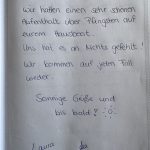 Wir hatten einen sehr schönen
Aufenthalt über Pfingsten auf
eurem Hausboot.
Uns hat es an Nichts gefehlt!
Wir kommen auf jeden Fall
wieder.
Sonnige Grüße und
bis bald!